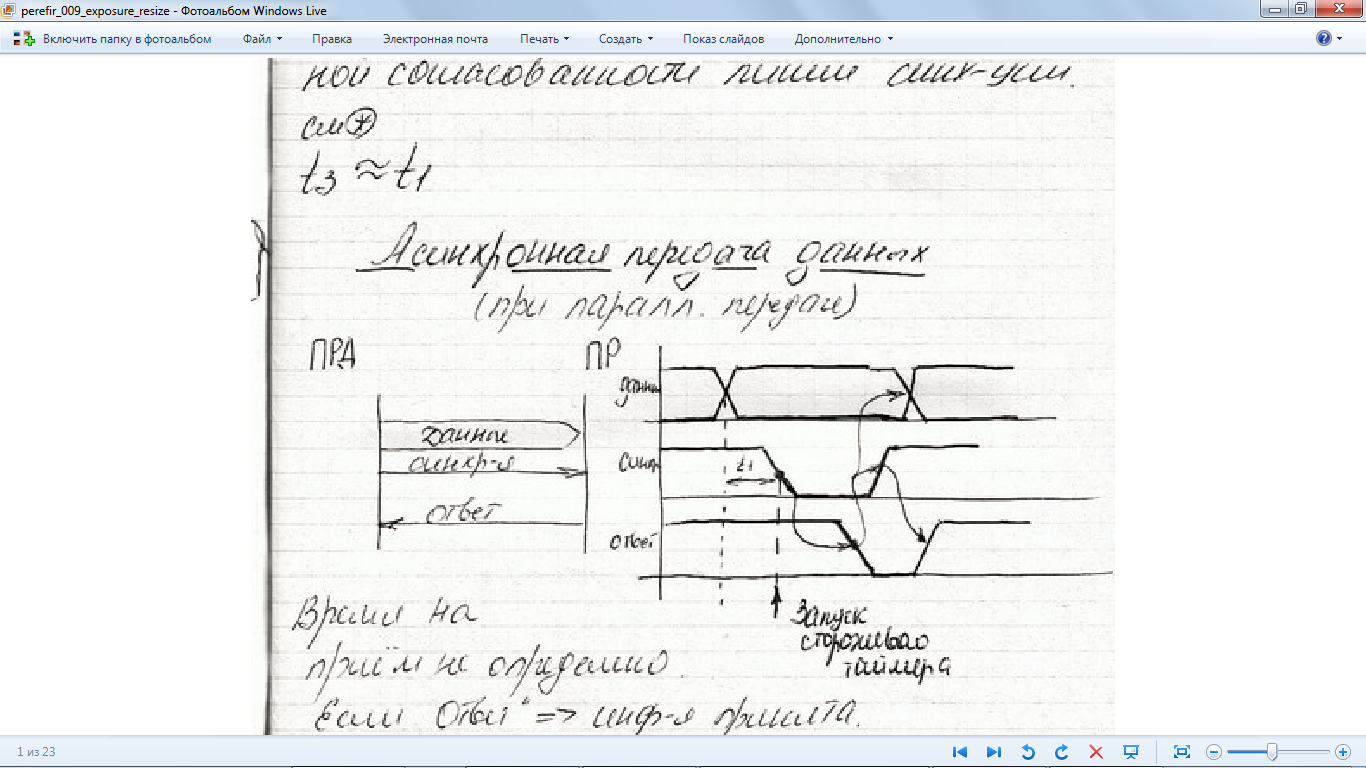 perefir_009_exposure_resize - Фотоальбом Windows Live
Включить папку в фотоальбом Файл Правка Электронная почта Печать Создать Показ слайдов Дополнительно
ной согласованности линии синх-ции.
см *
t3 ≈ t1
Асинхронная передача данных
(при паралл. передаче)
ПРД
ПР
данные
синхр-я
ответ
данн
синхр
ответ
t1
Запуск
сторожевого
таймера
Время на
приём не определено.
Если "Ответ" => инф-я принята.
1 из 23